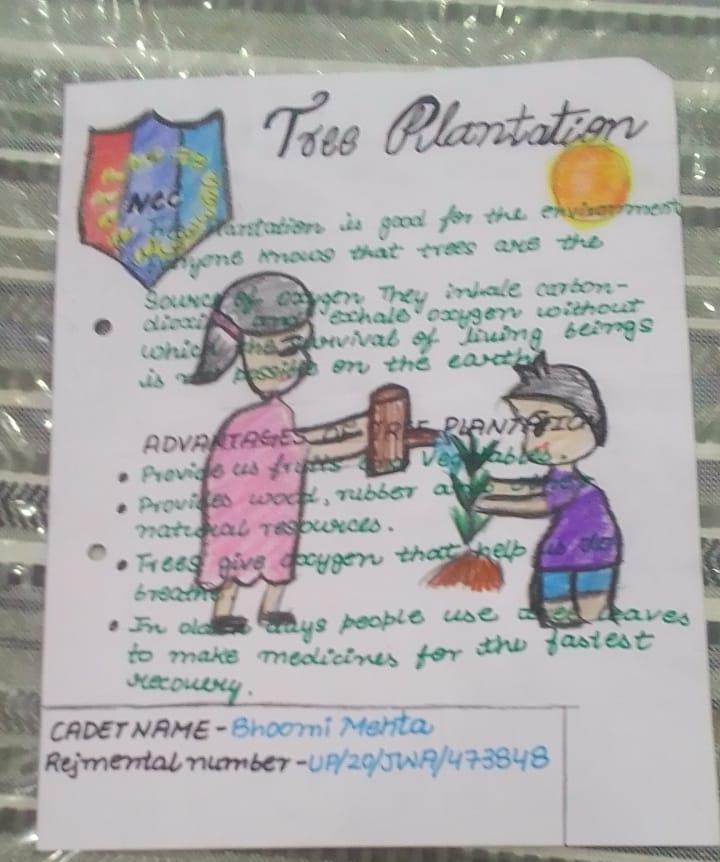 Tree Plantation
NCC
Tree plantation is good for the environment
everyone knows that trees are the
source of oxygen They inhale carbon-
dioxide and exhale oxygen without
which the survival of living beings
is not possible on the earth
ADVANTAGES OF TREE PLANTATION
• Provide us fruits and vegetables.
• Provides wood, rubber and other
natural resources.
• Trees give oxygen that help us to
breathe
• In olden days people use leaves
to make medicines for the fastest
recovery.
CADET NAME - Bhoomi Mehta
Rejmental number - UP/20/JWA/473848